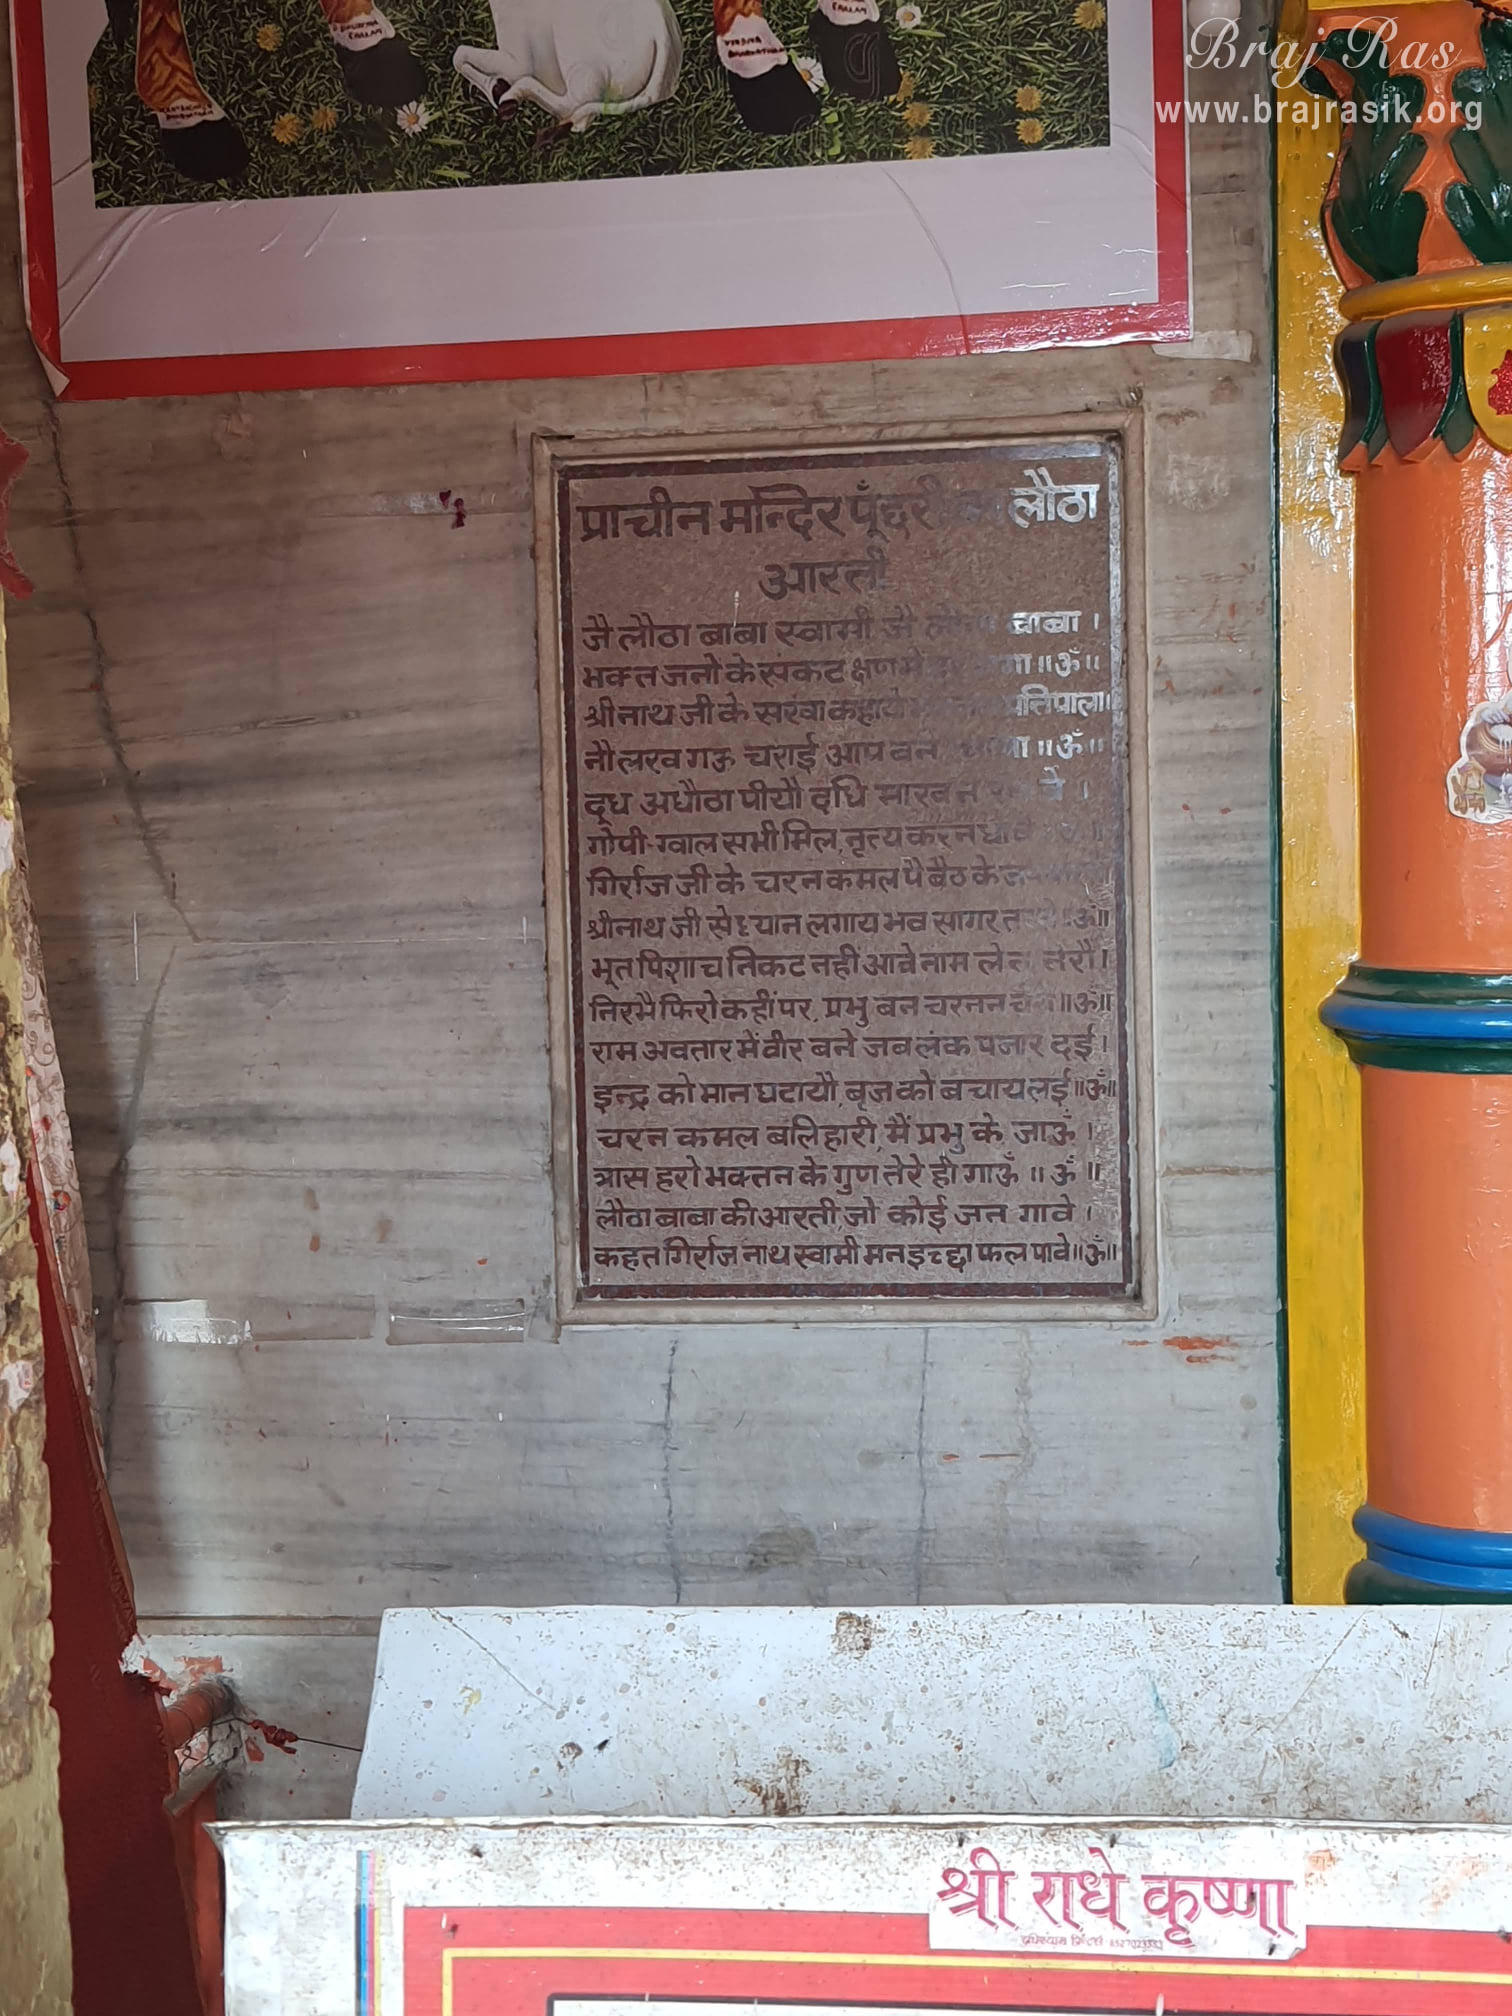 Braj Ras
www.brajrasik.org
प्राचीन मन्दिर पूँछरी का लौठा
आरती
जै लौठा बाबा स्वामी जै लौठा बाबा ।
भक्त जनो के संकट क्षण मे ॥ॐ॥
श्री नाथ जी के सखा कहाये प्रतिपाला।
नौ लख गऊ चराई आप बने ॥ॐ॥
दूध अधौठा पीयौ दधि माखन ।
गोपी-ग्वाल सभी मिल, नृत्य करन
गिर्राज जी के चरन कमल पै बैठ के
श्रीनाथ जी से ध्यान लगाय भव सागर ॥ॐ॥
भूत पिशाच निकट नहीं आवे नाम लेत तेरौ।
निरभै फिरो कहीं पर, प्रभु बन चरनन चेरा॥ॐ॥
राम अवतार में वीर बने जब लंक पजार दई।
इन्द्र को मान घटायौ, बृज को बचाय लई॥ॐ॥
चरन कमल बलिहारी, मैं प्रभु के जाऊँ ।
त्रास हरो भक्तन के गुण तेरे ही गाऊँ ॥ ॐ ॥
लौठा बाबा की आरती, जो कोई जन गावे ।
कहत गिर्राज नाथ स्वामी मन इच्छा फल पावे॥ॐ॥
श्री राधे कृष्णा